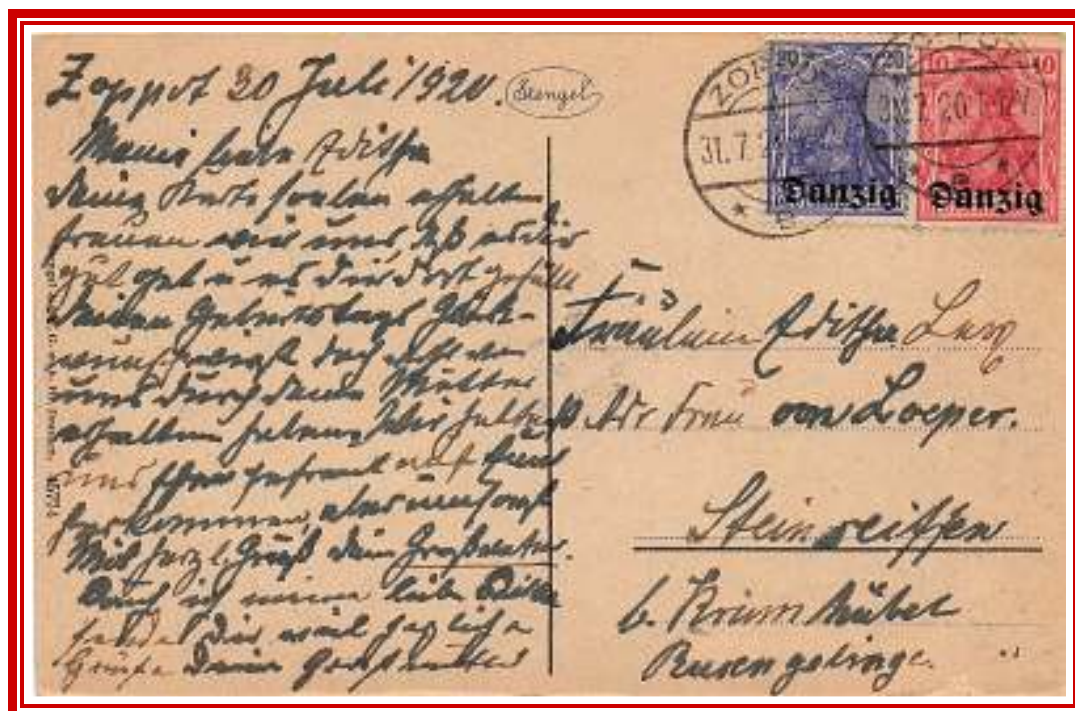 Zoppot 30 Juli 1920.
Stengel
Meine liebe Editha
Deine Karte soeben erhalten,
freuen wir uns, daß es dir
gut geht u es dir dort gefällt
Deinen Geburtstags Glück-
wunsch wirst doch wohl von
uns durch deine Mutter
erhalten haben. Wir hatten
uns schon gefreut auf Euer
herkommen, aber umsonst
Mit herzl. Gruß dein Großvater.
Auch ich meine liebe
sende Dir viel herzliche
Grüße Deine Großmutter
20 20
Danzig
10 10
Danzig
31.7.20
Fräulein Editha
Adr Frau von Loeper.
Steinseiffen
b. Krummhübel
Riesengebirge.